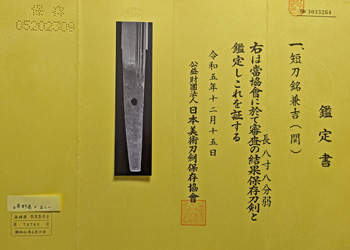 № 3033284
鑑定書
一、短刀 銘 兼吉(関)
長 八寸八分弱
右は當協會に於て審査の結果保存刀剣と
鑑定しこれを証する
令和五年十二月十五日
公益財團法人 日本美術刀剣保存協會
保
05202309